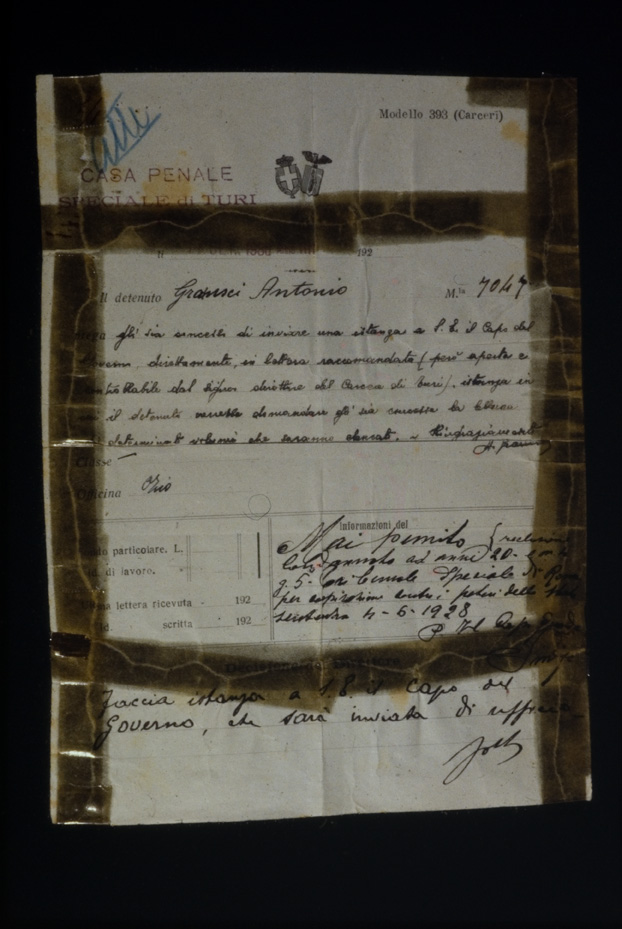 atti
Modello 393 (Carceri)
CASA PENALE
SPECIALE di TURI
192
Il detenuto Gramsci Antonio M.la 7047
gli sia concesso di inviare una istanza a S. E. il Capo del
Governo, direttamente, in lettera raccomandata (però aperta e
controllabile dal signor direttore del Carcere di Turi). istanza in
cui il detenuto vorrebbe domandare gli sia concessa la
determinati volumi che saranno elencati. Ringraziamenti
A. Gramsci
Classe
Officina Ozio
Informazioni del
Mai punito reclusione
Condannato ad anni 20
particolare. L.
g. 5. Tribunale Speciale di Roma
di lavoro.
per cospirazione contro i poteri dello Stato
lettera ricevuta 192
sentenza 4-6-1928
Id. scritta 192
P. Il Capo Guardia
Decisione del Direttore
Faccia istanza a S. E. il Capo del
Governo, che sarà inviata di ufficio